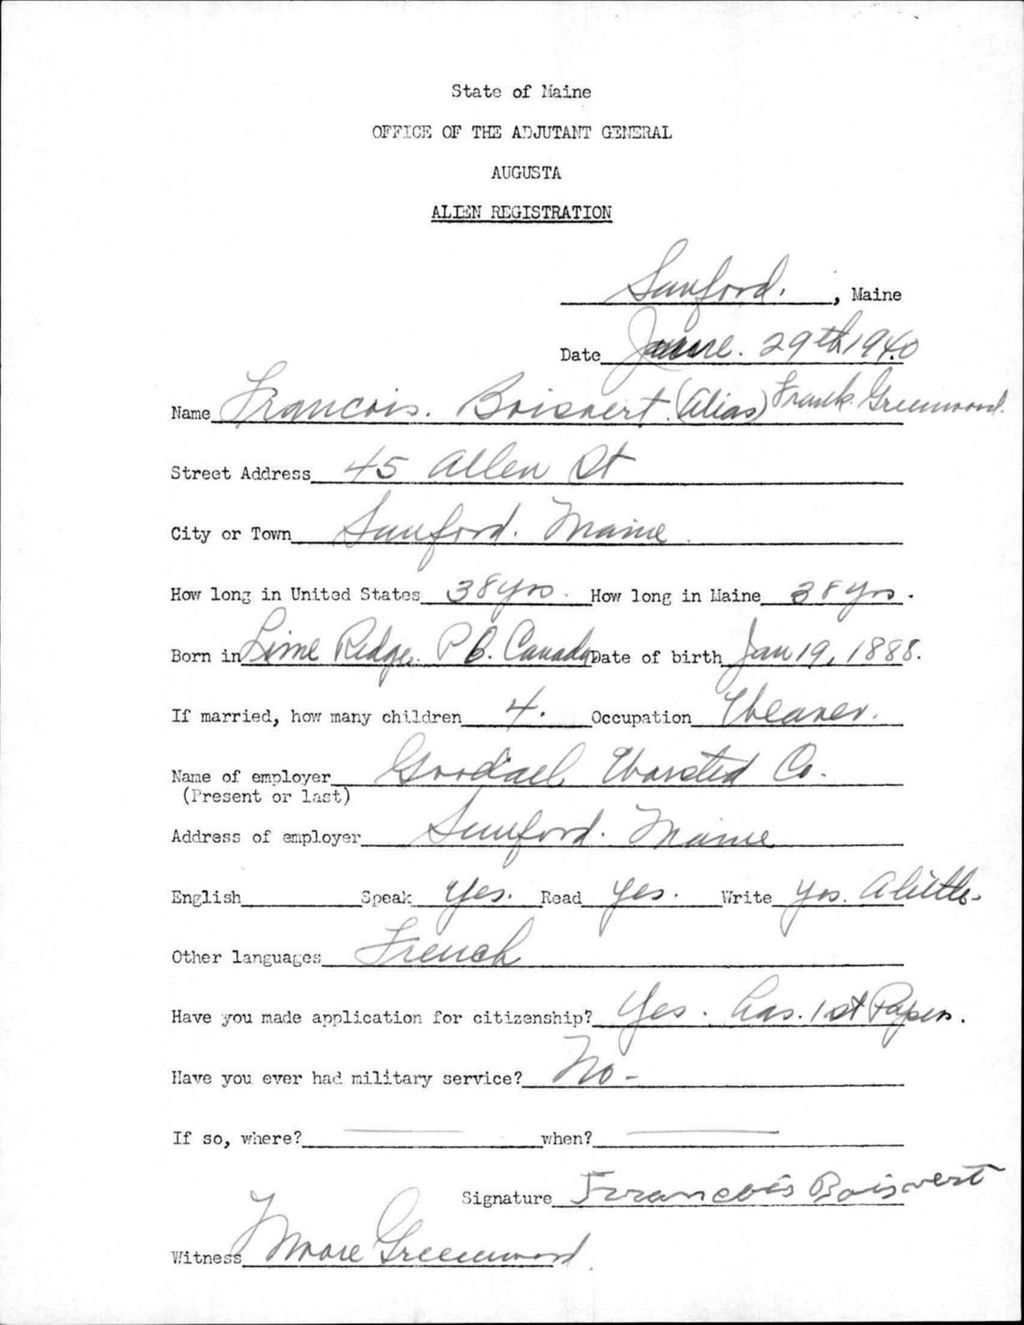 State of Maine
OFFICE OF THE ADJUTANT GENERAL
AUGUSTA
ALIEN REGISTRATION
Sanford. , Maine
Date June. 29th 1940
Name Francois. Boisvert. (Alias) Frank. Greenwood.
Street Address 45 Allen St
City or Town Sanford. Maine.
How long in United States 38 yrs. How long in Maine 38 yrs.
Born in Lime Ridge. P. Q. Canada Date of birth Jan 19, 1888.
If married, how many children 4. Occupation Weaver.
Name of employer Goodael Worsted Co.
(Present or last)
Address of employer Sanford. Maine
English Speak Yes. Read Yes. Write Yes. A little.
Other languages French
Have you made application for citizenship? Yes. has. 1st Papers.
Have you ever had military service? No -
If so, where? when?
Signature Francois Boisvert
Witness Greenwood